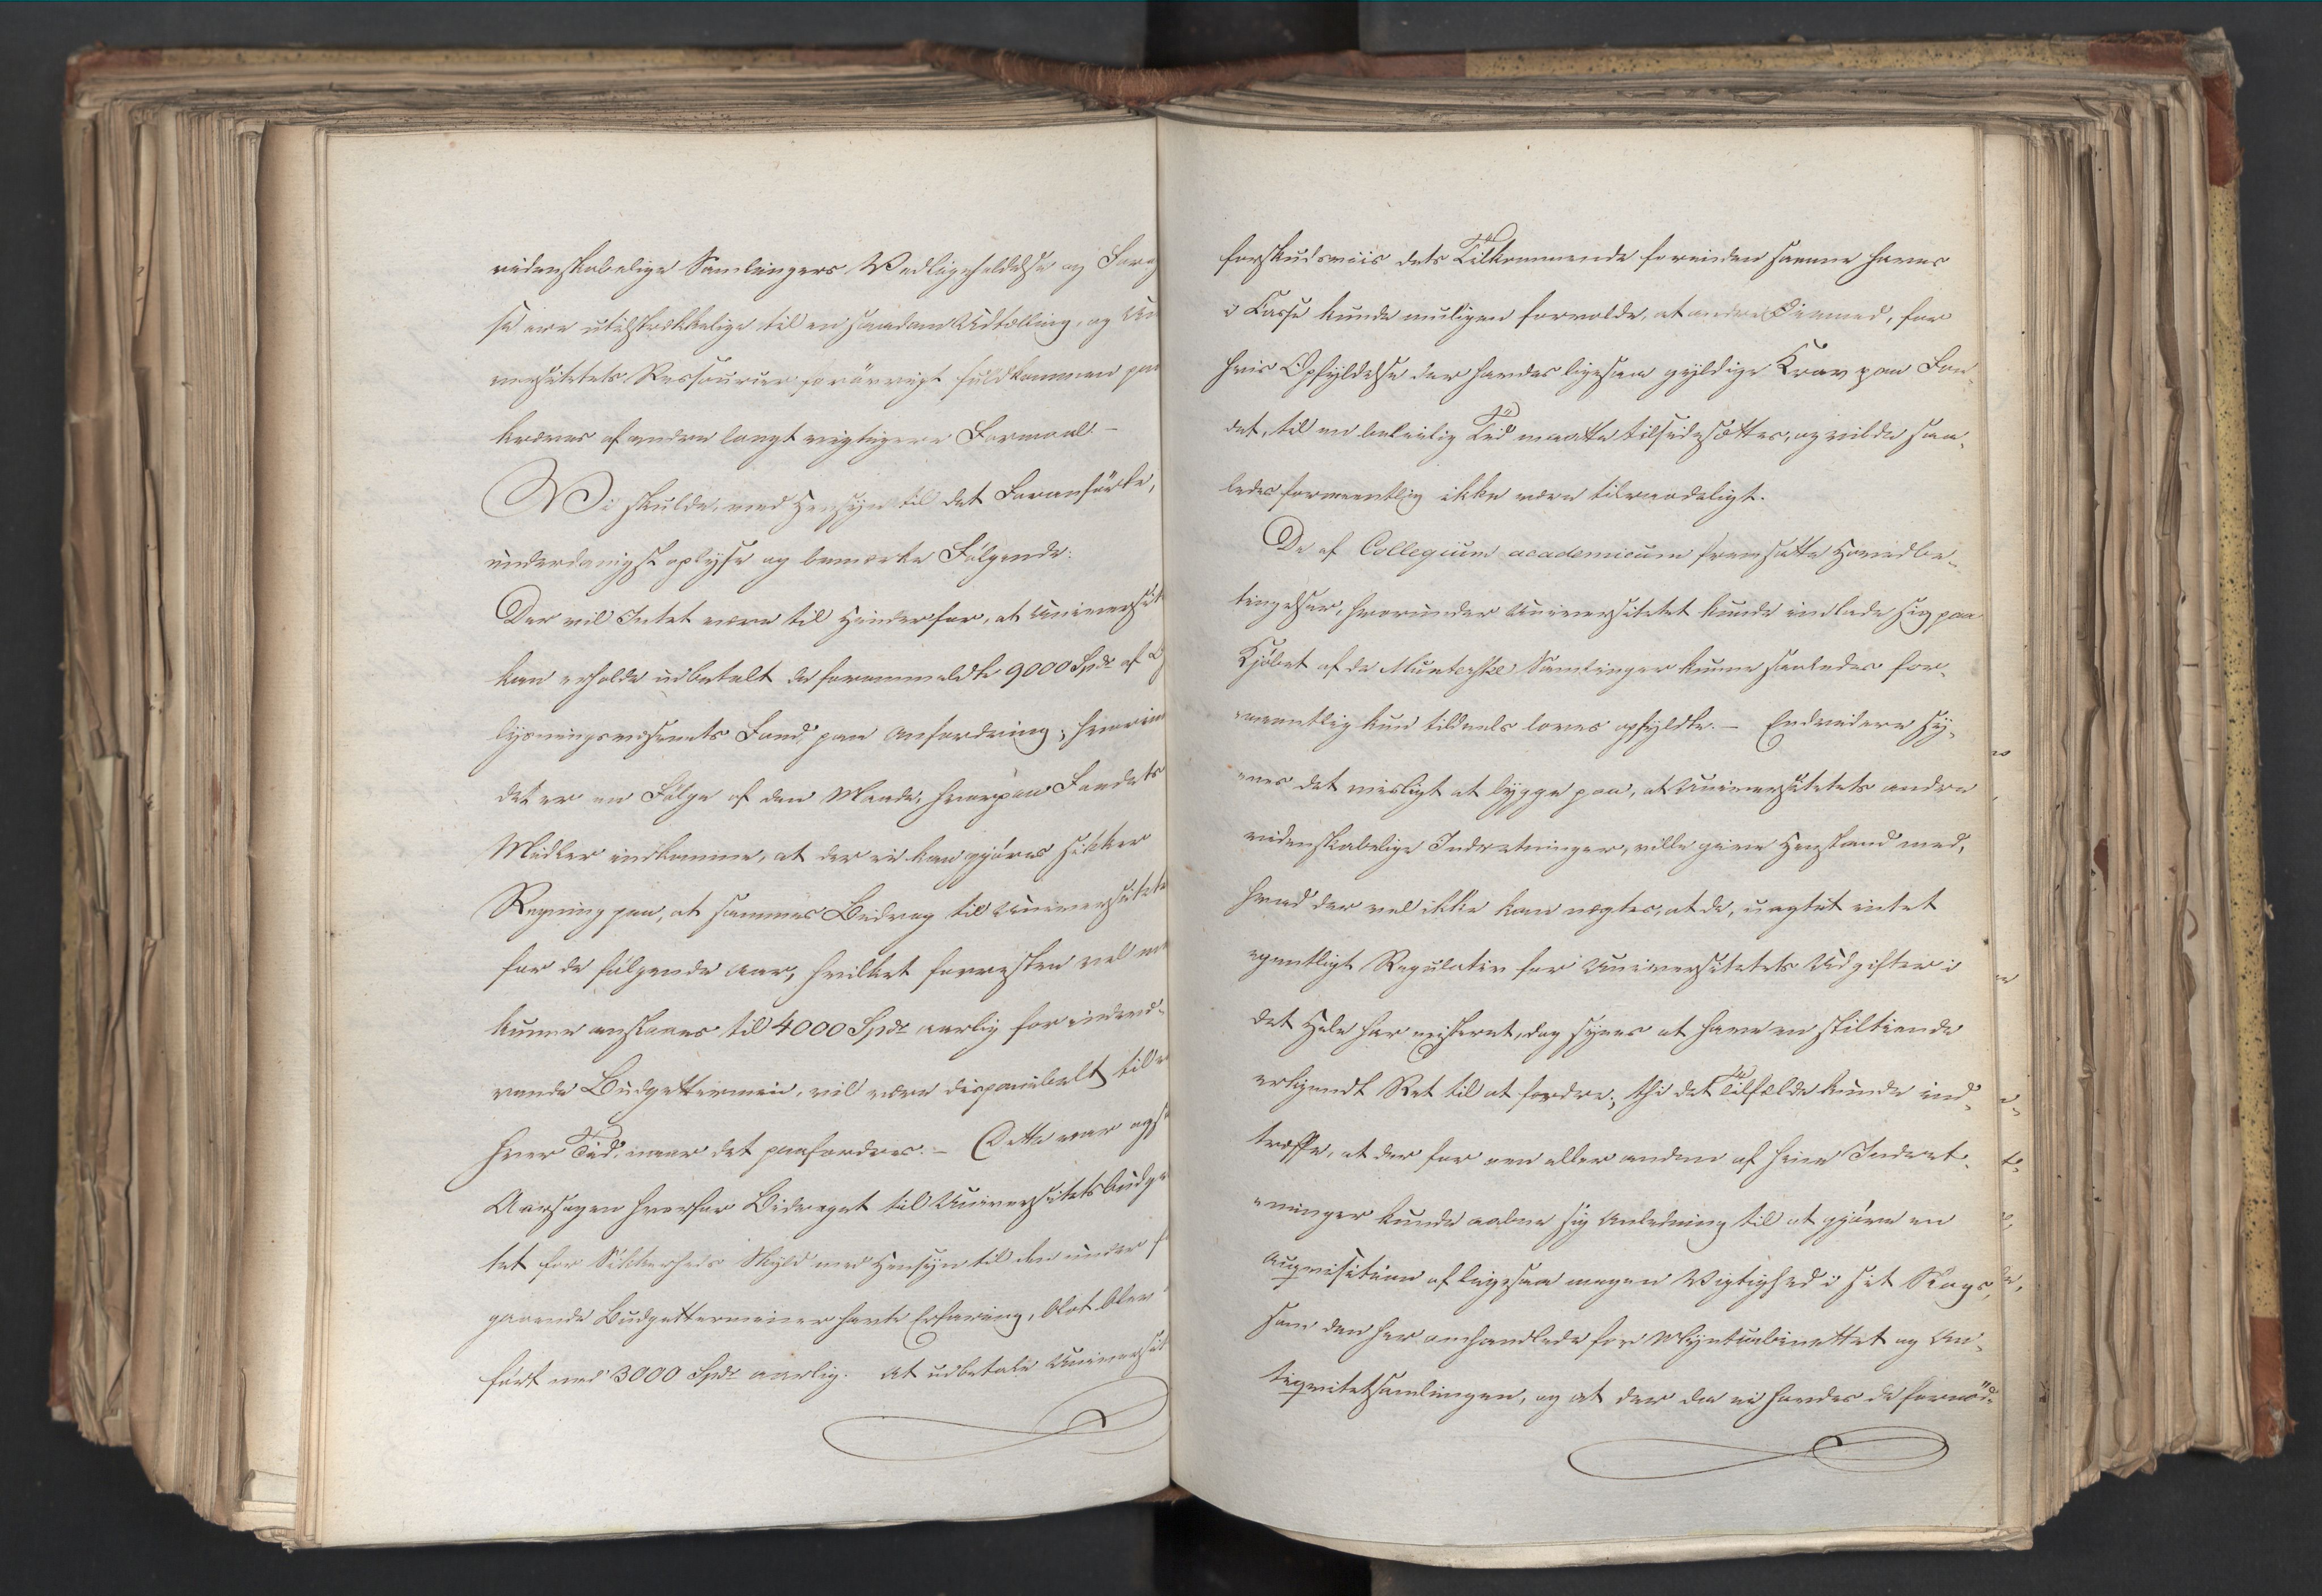 videnskabelige Samlingers Vedligeholdelse og Forø
se ere utilstrækkelige til en saadan Udtælling, og Un
versitetets Ressourcer forøvrigt fuldkommen paa
kræves af andre langt vigtigere Formaal. –
Vi skulde, med Hensyn til det Foranførte,
underdanigst oplyse og bemærke Følgende:
Der vil Intet være til Hinder for, at Universit
kan erholde udbetalt de forommeldte 9000 Spdr af
lysningsvæsenets Fond, paa Anfordring; hvorim
det er en Følge af den Maade, hvorpaa Fondets
Midler indkomme, at der ei kan gjøres sikker
Regning paa, at sammes Bidrag til Universitet
for de følgende Aar, hvilket forresten vel
kunne ansættes til 4000 Spdr aarlig for indevæ-
rende Budgettermin, vil være disponibelt til e
hver Tid, naar det paafordres. – Dette var ogs
Aarsagen hvorfor Bidraget til Universitetsbudge
tet for Sikkerheds Skyld med Hensyn til den under
gaaende Budgetterminer havte Erfaring, blot blev
ført med 3000 Spdr aarlig. At udbetale Universit
forskudsviis dets Tilkommende forinden samme haves
i Casse kunde muligen forvolde, at andre Øiemed, for
hvis Opfyldelse der havdes ligesaa gyldige Krav paa Fon-
det, til en beleilig Tid maatte tilsidesættes, og vilde saa-
ledes formeentlig ikke være tilraadeligt.
De af Collegium academicum fremsatte Hovedbe-
tingelser, hvorunder Universitetet kunde indlade sig paa
Kjøbet af de Münterske Samlinger kunne saaledes for-
meentlig kun tildeels loves opfyldte. – Endvidere sy-
nes det misligt at bygge paa, at Universitetets andre
videnskabelige Indretninger, ville give Henstand med,
hvad der vel ikke kan nægtes, at de, uagtet intet
egentligt Regulativ for Universitetets Udgifter i
det Hele har existeret, dog synes at have en stiltiende
erkjendt Ret til at fordre; thi det Tilfælde kunde ind-
træffe, at der for een eller anden af hine Indret-
ninger kunde aabne sig Anledning til at gjøre en
Acqvisition af ligesaa megen Vigtighed i sit Slags,
som den her omhandlede for Myntcabinettet og An-
tiqvitetsamlingen, og at der da ei havdes de fornød-